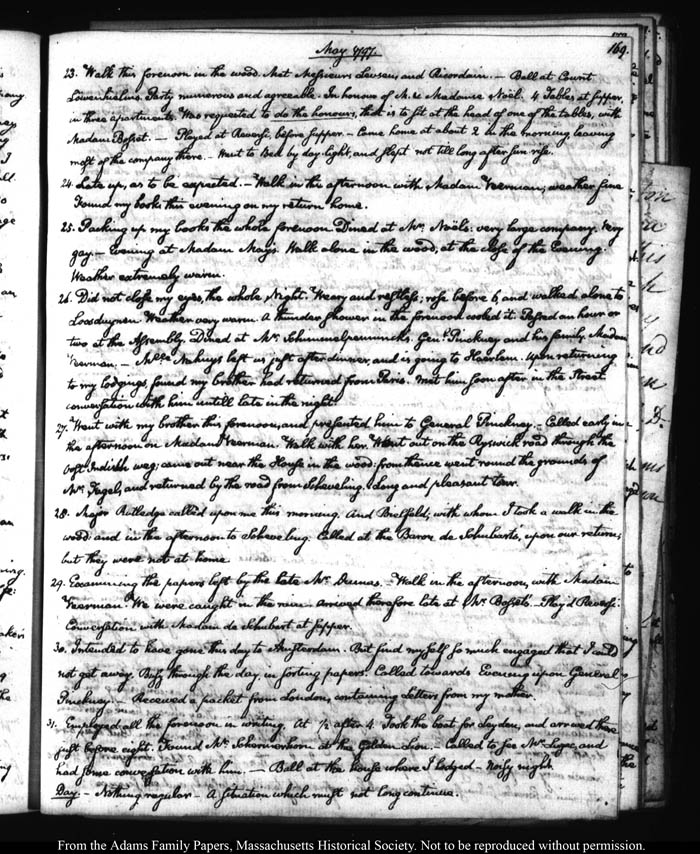 169.
May 1797.
23. Walk this forenoon in the wood. Met Messieurs Levsen, and Ricordain. — Ball at Count
Löwenhielm's. Party numerous and agreeable. In honour of M. & Madame Noël. 4 Tables at supper,
in three apartments. Was requested to do the honours, that is to sit at the head of one of the tables, with
Madam Bosset. — Played at Reversi before supper. — Came home at about 2 in the morning leaving
most of the company there. — Went to Bed by day-light, and slept not till long after sun rise.
24. Late up, as to be expected. — Walk in the afternoon with Madam Veerman; weather fine
Found my books this evening on my return home.
25. Packing up my books the whole forenoon Dined at Mr. Noël's: very large company. Very
gay. — Evening at Madam May's. Walk alone in the wood, at the close of the Evening.
Weather extremely warm.
26. Did not close my eyes, the whole Night. Weary and restless; rose before 6, and walked alone to
Loosduynen. Weather very warm. A thunder shower in the forenoon cooled it. Passed an hour or
two at the Assembly. Dined at Mr. Schimmelpenninck's. Genl. Pinckney and his family. Madam
Veerman. — Mlle. Nahuys left us just after dinner, and is going to Haerlem. Upon returning
to my lodgings, found my brother had returned from Paris. Met him soon after in the Street
conversation with him untill late in the night.
27. Went with my brother this forenoon, and presented him to General Pinckney. — Called early in
the afternoon on Madam Veerman. Walk with her. Went out on the Ryswick road through the
Oost Indisch weg; came out near the House in the wood: from thence went round the grounds of
Mr. Fagel, and returned by the road from Scheveling. Long and pleasant tour.
28. Major Rutledge called upon me this morning. And Bielfeld; with whom I took a walk in the
wood and in the afternoon to Scheveling. Called at the Baron de Schubart's, upon our return;
but they were not at home.
29. Examining the papers left by the late Mr. Dumas. — Walk in the afternoon, with Madam
Veerman. We were caught in the rain arrived therefore late at Mr. Bosset's. — Play'd Reversi.
Conversation with Madam de Schubart at supper.
30. Intended to have gone this day to Amsterdam. But find myself so much engaged that I could
not get away. Busy through the day, in sorting papers. Called towards Evening upon General
Pinckney. — Received a packet from London, containing letters from my mother.
31. Employed all the forenoon in writing. At ½ after 4. Took the boat for Leyden, and arrived there
just before eight. Found Mr. Schermerhorn at the Golden Lion. — Called to see Mr. Luzac, and
had some conversation with him. — Ball at the house where I lodged. — Noisy night.
Day. — Nothing regular — A situation which must not long continue.
From the Adams Family Papers, Massachusetts Historical Society. Not to be reproduced without permission.